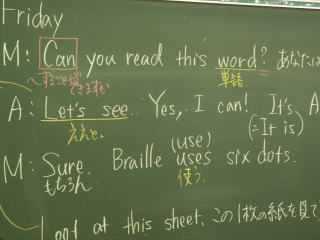 Friday
M: Can you read this word? あなたは
~することができますか 単語
A: Let's see. Yes, I can! It's A
ええと. (=It is)
(use)
M: Sure. Braille uses six dots.
もちろん 使う
Look at this sheet. この1枚の紙を見て